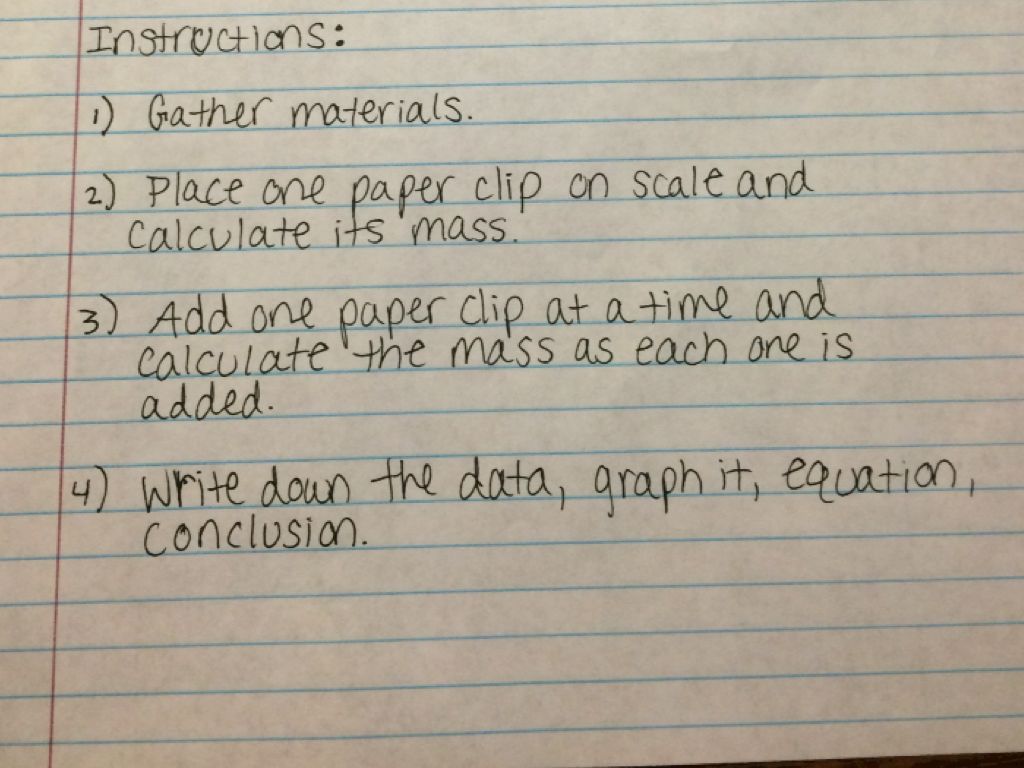 Instructions:
1) Gather materials.
2) Place one paper clip on scale and
calculate its mass.
3) Add one paper clip at a time and
calculate the mass as each one is
added.
4) Write down the data, graph it, equation,
conclusion.